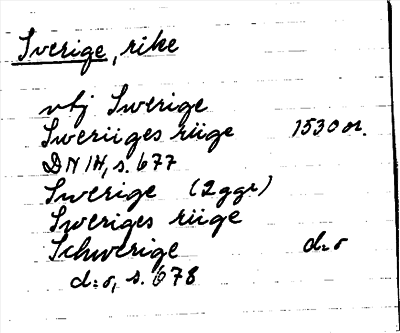 Sverige, rike
vbj Swerige
Sweriiges riige 1530 or.
DN 14, s. 677
Swerige (2 ggr)
Sweriges riige
Schwerige d:o
d:o, s. 678